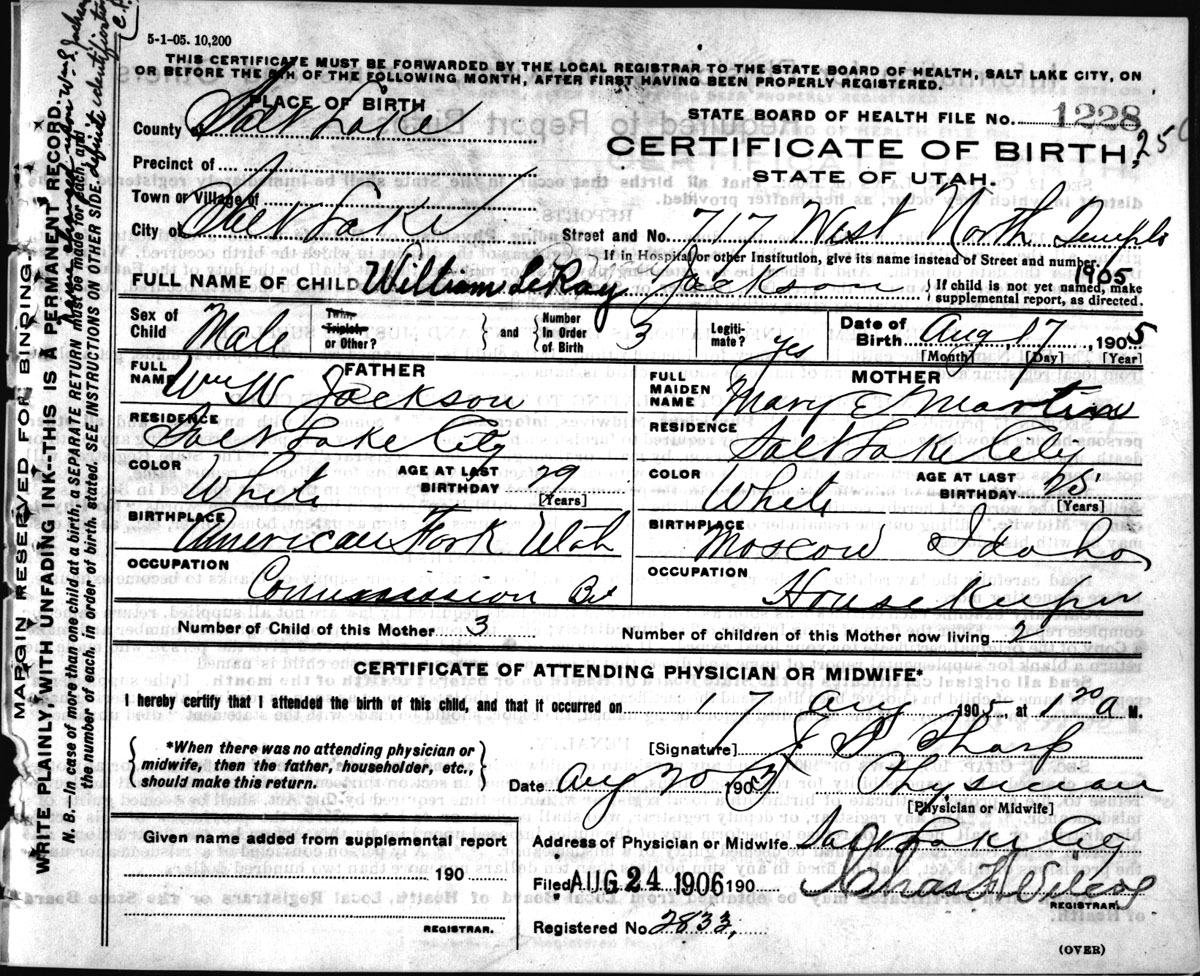 5-1-05. 10,200
THIS CERTIFICATE MUST BE FORWARDED BY THE LOCAL REGISTRAR TO THE STATE BOARD OF HEALTH, SALT LAKE CITY, ON
OR BEFORE THE 5TH OF THE FOLLOWING MONTH, AFTER FIRST HAVING BEEN PROPERLY REGISTERED.
PLACE OF BIRTH
STATE BOARD OF HEALTH FILE No. 1228
County of Salt Lake
CERTIFICATE OF BIRTH, 250
Precinct of
STATE OF UTAH.
Town or Village of
City of Salt Lake Street and No. 717 West North Temple
If in Hospital or other Institution, give its name instead of Street and number.
1905
FULL NAME OF CHILD William LeRoy Jackson { If child is not yet named, make
supplemental report, as directed.
Sex of Child Male Twin, Triplet, or Other? } and { Number in Order of Birth 3 Legitimate? yes Date of Birth Aug 17, 1905
[Month] [Day] [Year]
FATHER
FULL NAME Wm W Jackson
RESIDENCE Salt Lake City
COLOR White AGE AT LAST BIRTHDAY 29
[Years]
BIRTHPLACE American Fork Utah
OCCUPATION Commission
MOTHER
FULL MAIDEN NAME Mary E Martin
RESIDENCE Salt Lake City
COLOR White AGE AT LAST BIRTHDAY 25
[Years]
BIRTHPLACE Moscow Idaho
OCCUPATION House Keeper
Number of Child of this Mother 3 Number of children of this Mother now living 2
CERTIFICATE OF ATTENDING PHYSICIAN OR MIDWIFE*
I hereby certify that I attended the birth of this child, and that it occurred on 17 Aug, 1905, at 1 20 a M.
{ *When there was no attending physician or
midwife, then the father, householder, etc.,
should make this return. }
[Signature] Tharp
Date Aug 20 190 Physician
[Physician or Midwife]
Given name added from supplemental report
190
REGISTRAR.
Address of Physician or Midwife Salt Lake City
Filed AUG 24 1906 190
REGISTRAR.
Registered No. 2833.
(OVER)
MARGIN RESERVED FOR BINDING.
WRITE PLAINLY, WITH UNFADING INK--THIS IS A PERMANENT RECORD.
N. B.—In case of more than one child at a birth, a SEPARATE RETURN must be made for each, and
the number of each, in order of birth, stated. SEE INSTRUCTIONS ON OTHER SIDE.